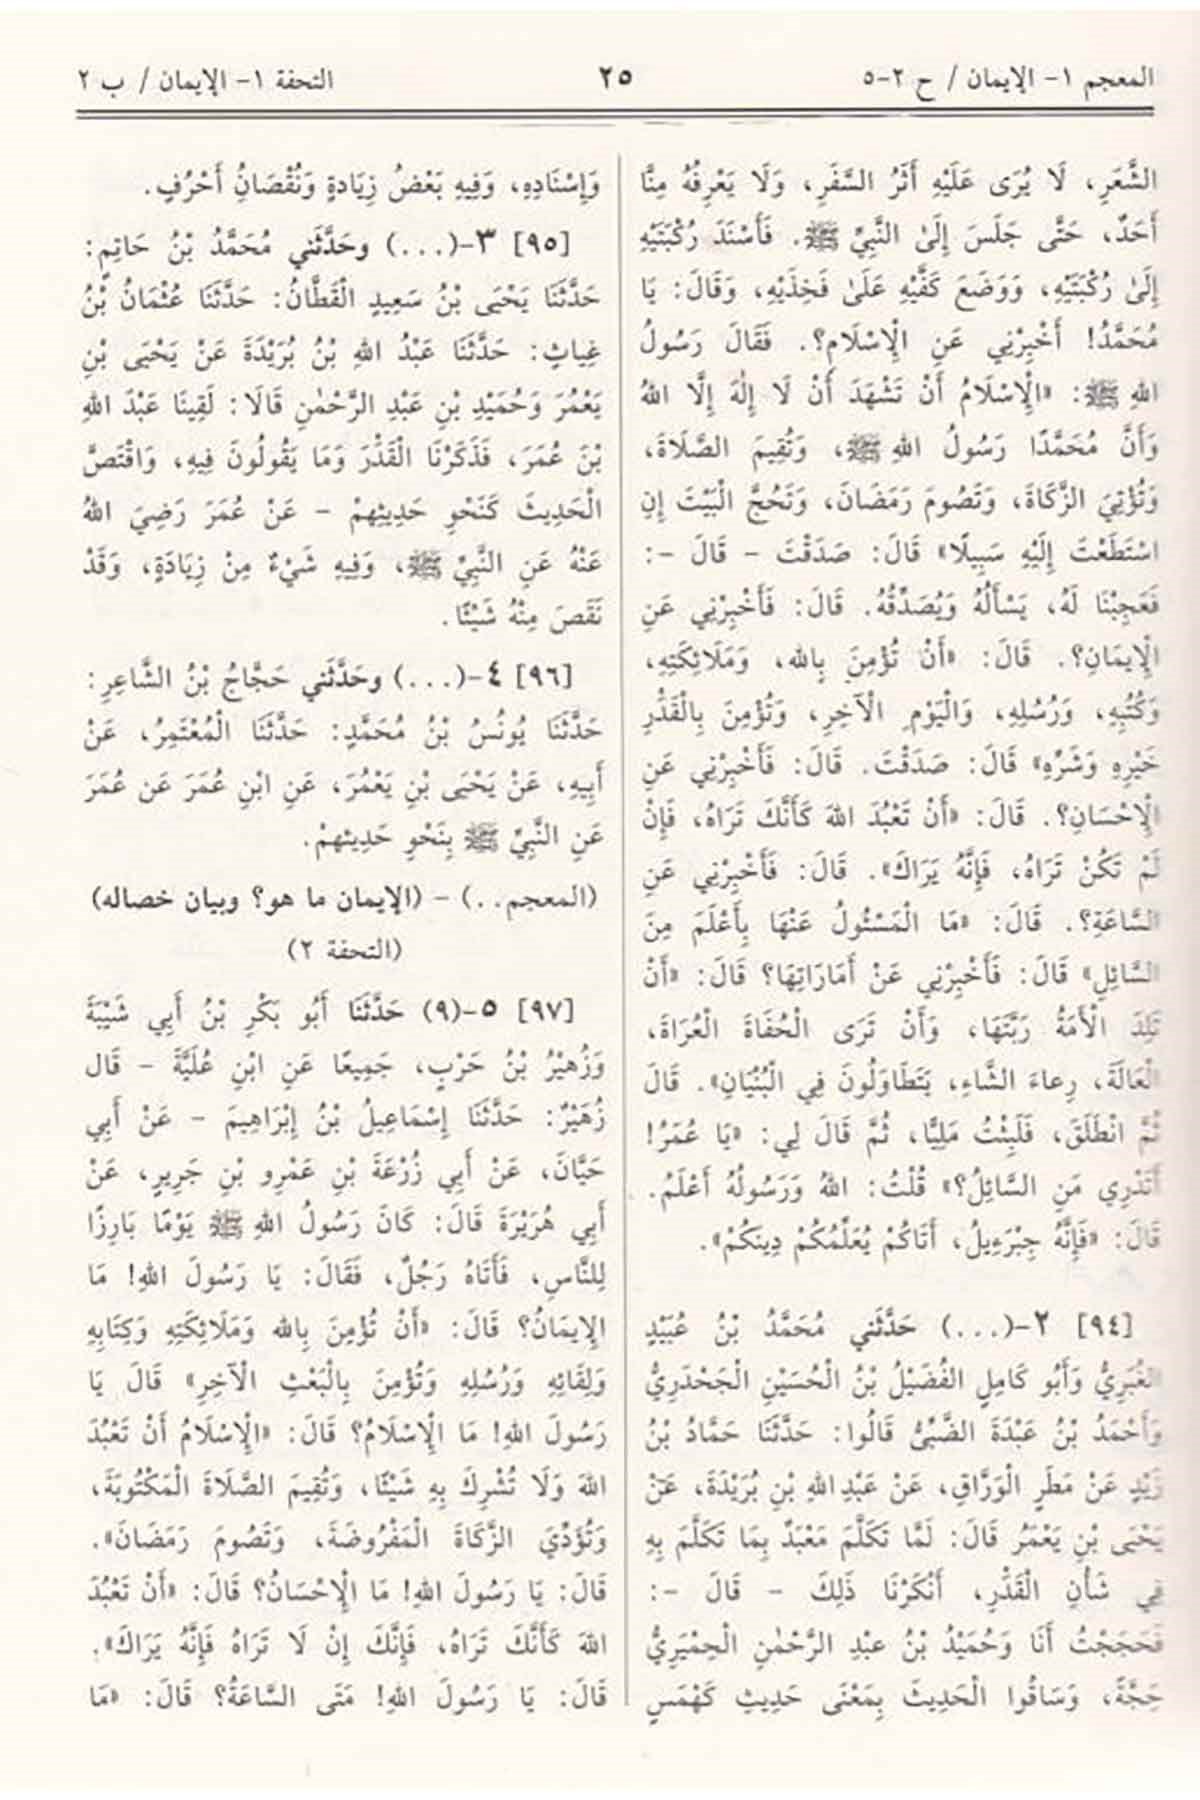 المعجم ١- الإيمان / ح ٢-٥
٢٥
التحفة ١- الإيمان / ب ٢
الشَّعَرِ، لَا يُرَى عَلَيْهِ أَثَرُ السَّفَرِ، وَلَا يَعْرِفُهُ مِنَّا
أَحَدٌ، حَتَّى جَلَسَ إِلَىٰ النَّبِيِّ ﷺ. فَأَسْنَدَ رُكْبَتَيْهِ
إِلَىٰ رُكْبَتَيْهِ، وَوَضَعَ كَفَّيْهِ عَلَىٰ فَخِذَيْهِ، وَقَالَ: يَا
مُحَمَّدُ! أَخْبِرْنِي عَنِ الْإِسْلَامِ؟. فَقَالَ رَسُولُ
اللهِ ﷺ: «الْإِسْلَامُ أَنْ تَشْهَدَ أَنْ لَا إِلٰهَ إِلَّا اللهُ
وَأَنَّ مُحَمَّدًا رَسُولُ اللهِ ﷺ، وَتُقِيمَ الصَّلَاةَ،
وَتُؤْتِيَ الزَّكَاةَ، وَتَصُومَ رَمَضَانَ، وَتَحُجَّ الْبَيْتَ إِنِ
اسْتَطَعْتَ إِلَيْهِ سَبِيلًا» قَالَ: صَدَقْتَ - قَالَ -:
فَعَجِبْنَا لَهُ، يَسْأَلُهُ وَيُصَدِّقُهُ. قَالَ: فَأَخْبِرْنِي عَنِ
الْإِيمَانِ؟. قَالَ: «أَنْ تُؤْمِنَ بِاللهِ، وَمَلَائِكَتِهِ،
وَكُتُبِهِ، وَرُسُلِهِ، وَالْيَوْمِ الْآخِرِ، وَتُؤْمِنَ بِالْقَدَرِ
خَيْرِهِ وَشَرِّهِ» قَالَ: صَدَقْتَ. قَالَ: فَأَخْبِرْنِي عَنِ
الْإِحْسَانِ؟. قَالَ: «أَنْ تَعْبُدَ اللهَ كَأَنَّكَ تَرَاهُ، فَإِنْ
لَمْ تَكُنْ تَرَاهُ، فَإِنَّهُ يَرَاكَ». قَالَ: فَأَخْبِرْنِي عَنِ
السَّاعَةِ؟. قَالَ: «مَا الْمَسْئُولُ عَنْهَا بِأَعْلَمَ مِنَ
السَّائِلِ» قَالَ: فَأَخْبِرْنِي عَنْ أَمَارَاتِهَا؟ قَالَ: «أَنْ
تَلِدَ الْأَمَةُ رَبَّتَهَا، وَأَنْ تَرَى الْحُفَاةَ الْعُرَاةَ،
الْعَالَةَ، رِعاءَ الشَّاءِ، يَتَطَاوَلُونَ فِي الْبُنْيَانِ». قَالَ
ثُمَّ انْطَلَقَ، فَلَبِثْتُ مَلِيًّا، ثُمَّ قَالَ لِي: «يَا عُمَرُ!
أَتَدْرِي مَنِ السَّائِلُ؟» قُلْتُ: اللهُ وَرَسُولُهُ أَعْلَمُ.
قَالَ: «فَإِنَّهُ جِبْرَءِيلُ، أَتَاكُمْ يُعَلِّمُكُمْ دِينَكُمْ».
[٩٤] ٢-(...) حَدَّثَنِي مُحَمَّدُ بْنُ عُبَيْدٍ
الْغُبَرِيُّ وَأَبُو كَامِلٍ الْفُضَيْلُ بْنُ الْحُسَيْنِ الْجَحْدَرِيُّ
وَأَحْمَدُ بْنُ عَبْدَةَ الضَّبِّيُّ قَالُوا: حَدَّثَنَا حَمَّادُ بْنُ
زَيْدٍ عَنْ مَطَرٍ الْوَرَّاقِ، عَنْ عَبْدِ اللهِ بْنِ بُرَيْدَةَ، عَنْ
يَحْيَى بْنِ يَعْمَرَ قَالَ: لَمَّا تَكَلَّمَ مَعْبَدٌ بِمَا تَكَلَّمَ بِهِ
فِي شَأْنِ الْقَدَرِ، أَنْكَرْنَا ذَلِكَ - قَالَ -:
فَحَجَجْتُ أَنَا وَحُمَيْدُ بْنُ عبْدِ الرَّحْمٰنِ الْحِمْيَرِيُّ
حِجَّةً، وَسَاقُوا الْحَدِيثَ بِمَعْنَى حَدِيثِ كَهْمَسٍ
وَإِسْنَادِهِ، وَفِيهِ بَعْضُ زِيَادَةٍ وَنُقْصَانُ أَحْرُفٍ.
[٩٥] ٣-(...) وحَدَّثَنِي مُحَمَّدُ بْنُ حَاتِمٍ:
حَدَّثَنَا يَحْيَى بْنُ سَعِيدٍ الْقَطَّانُ: حَدَّثَنَا عُثْمَانُ بْنُ
غِياثٍ: حَدَّثَنَا عَبْدُ اللهِ بْنُ بُرَيْدَةَ عَنْ يَحْيَى بْنِ
يَعْمُرَ وَحُمَيْدِ بْنِ عَبْدِ الرَّحْمٰنِ قَالَا: لَقِينَا عَبْدَ اللهِ
بْنَ عُمَرَ، فَذَكَرْنَا الْقَدَرَ وَمَا يَقُولُونَ فِيهِ، وَاقْتَصَّ
الْحَدِيثَ كَنَحْوِ حَدِيثِهِمْ - عَنْ عُمَرَ رَضِيَ اللهُ
عَنْهُ عَنِ النَّبِيِّ ﷺ، وَفِيهِ شَيْءٌ مِنْ زِيَادَةٍ، وَقَدْ
نَقَصَ مِنْهُ شَيْئًا.
[٩٦] ٤-(...) وحَدَّثَنِي حَجَّاجُ بْنُ الشَّاعِرِ:
حَدَّثَنَا يُونُسُ بْنُ مُحَمَّدٍ: حَدَّثَنَا الْمُعْتَمِرُ، عَنْ
أَبِيهِ، عَنْ يَحْيَى بْنِ يَعْمُرَ، عَنِ ابْنِ عُمَرَ عَن عُمَرَ
عَنِ النَّبِيِّ ﷺ بِنَحْوِ حَدِيثِهِمْ.
(المعجم..) - (الإيمان ما هو؟ وبيان خصاله)
(التحفة ٢)
[٩٧] ٥-(٩) حَدَّثَنَا أَبُو بَكْرِ بْنُ أَبِي شَيْبَةَ
وَزُهَيْرُ بْنُ حَرْبٍ، جَمِيعًا عَنِ ابْنِ عُلَيَّةَ - قَال
زُهَيْرٌ: حَدَّثَنَا إِسْمَاعِيلُ بْنُ إِبْرَاهِيمَ - عَنْ أَبِي
حَيَّانَ، عَنْ أَبِي زُرْعَةَ بْنِ عَمْرِو بْنِ جَرِيرٍ، عَنْ
أَبِي هُرَيْرَةَ قَالَ: كَانَ رَسُولُ اللهِ ﷺ يَوْمًا بَارِزًا
لِلنَّاسِ، فَأَتَاهُ رَجُلٌ، فَقَالَ: يَا رَسُولَ اللهِ! مَا
الْإِيمَانُ؟ قَالَ: «أَنْ تُؤْمِنَ بِاللهِ وَمَلَائِكَتِهِ وَكِتَابِهِ
وَلِقَائِهِ وَرُسُلِهِ وَتُؤْمِنَ بِالْبَعْثِ الْآخِرِ» قَالَ يَا
رَسُولَ اللهِ! مَا الْإِسْلَامُ؟ قَالَ: «الْإِسْلَامُ أَنْ تَعْبُدَ
اللهَ وَلَا تُشْرِكَ بِهِ شَيْئًا، وَتُقِيمَ الصَّلَاةَ الْمَكْتُوبَةَ،
وَتُؤَدِّيَ الزَّكَاةَ الْمَفْرُوضَةَ، وَتَصُومَ رَمَضَانَ».
قَالَ: يَا رَسُولَ اللهِ! مَا الْإِحْسَانُ؟ قَالَ: «أَنْ تَعْبُدَ
اللهَ كَأَنَّكَ تَرَاهُ، فَإِنَّكَ إِنْ لَا تَرَاهُ فَإِنَّهُ يَرَاكَ».
قَالَ: يَا رَسُولَ اللهِ! مَتَى السَّاعَةُ؟ قَالَ: «مَا